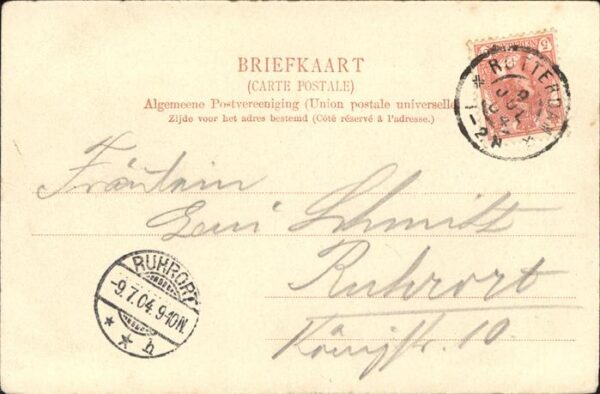 BRIEFKAART
(CARTE POSTALE)
Algemeene Postvereeniging (Union postale universelle
Zijde voor het adres bestemd (Côté réservé à l'adresse.)
ROTTERDAM
Fräulein
Schmitz
Ruhrort
Königstr. 10.
RUHRORT
-9.7.04.9-10N.
* * h